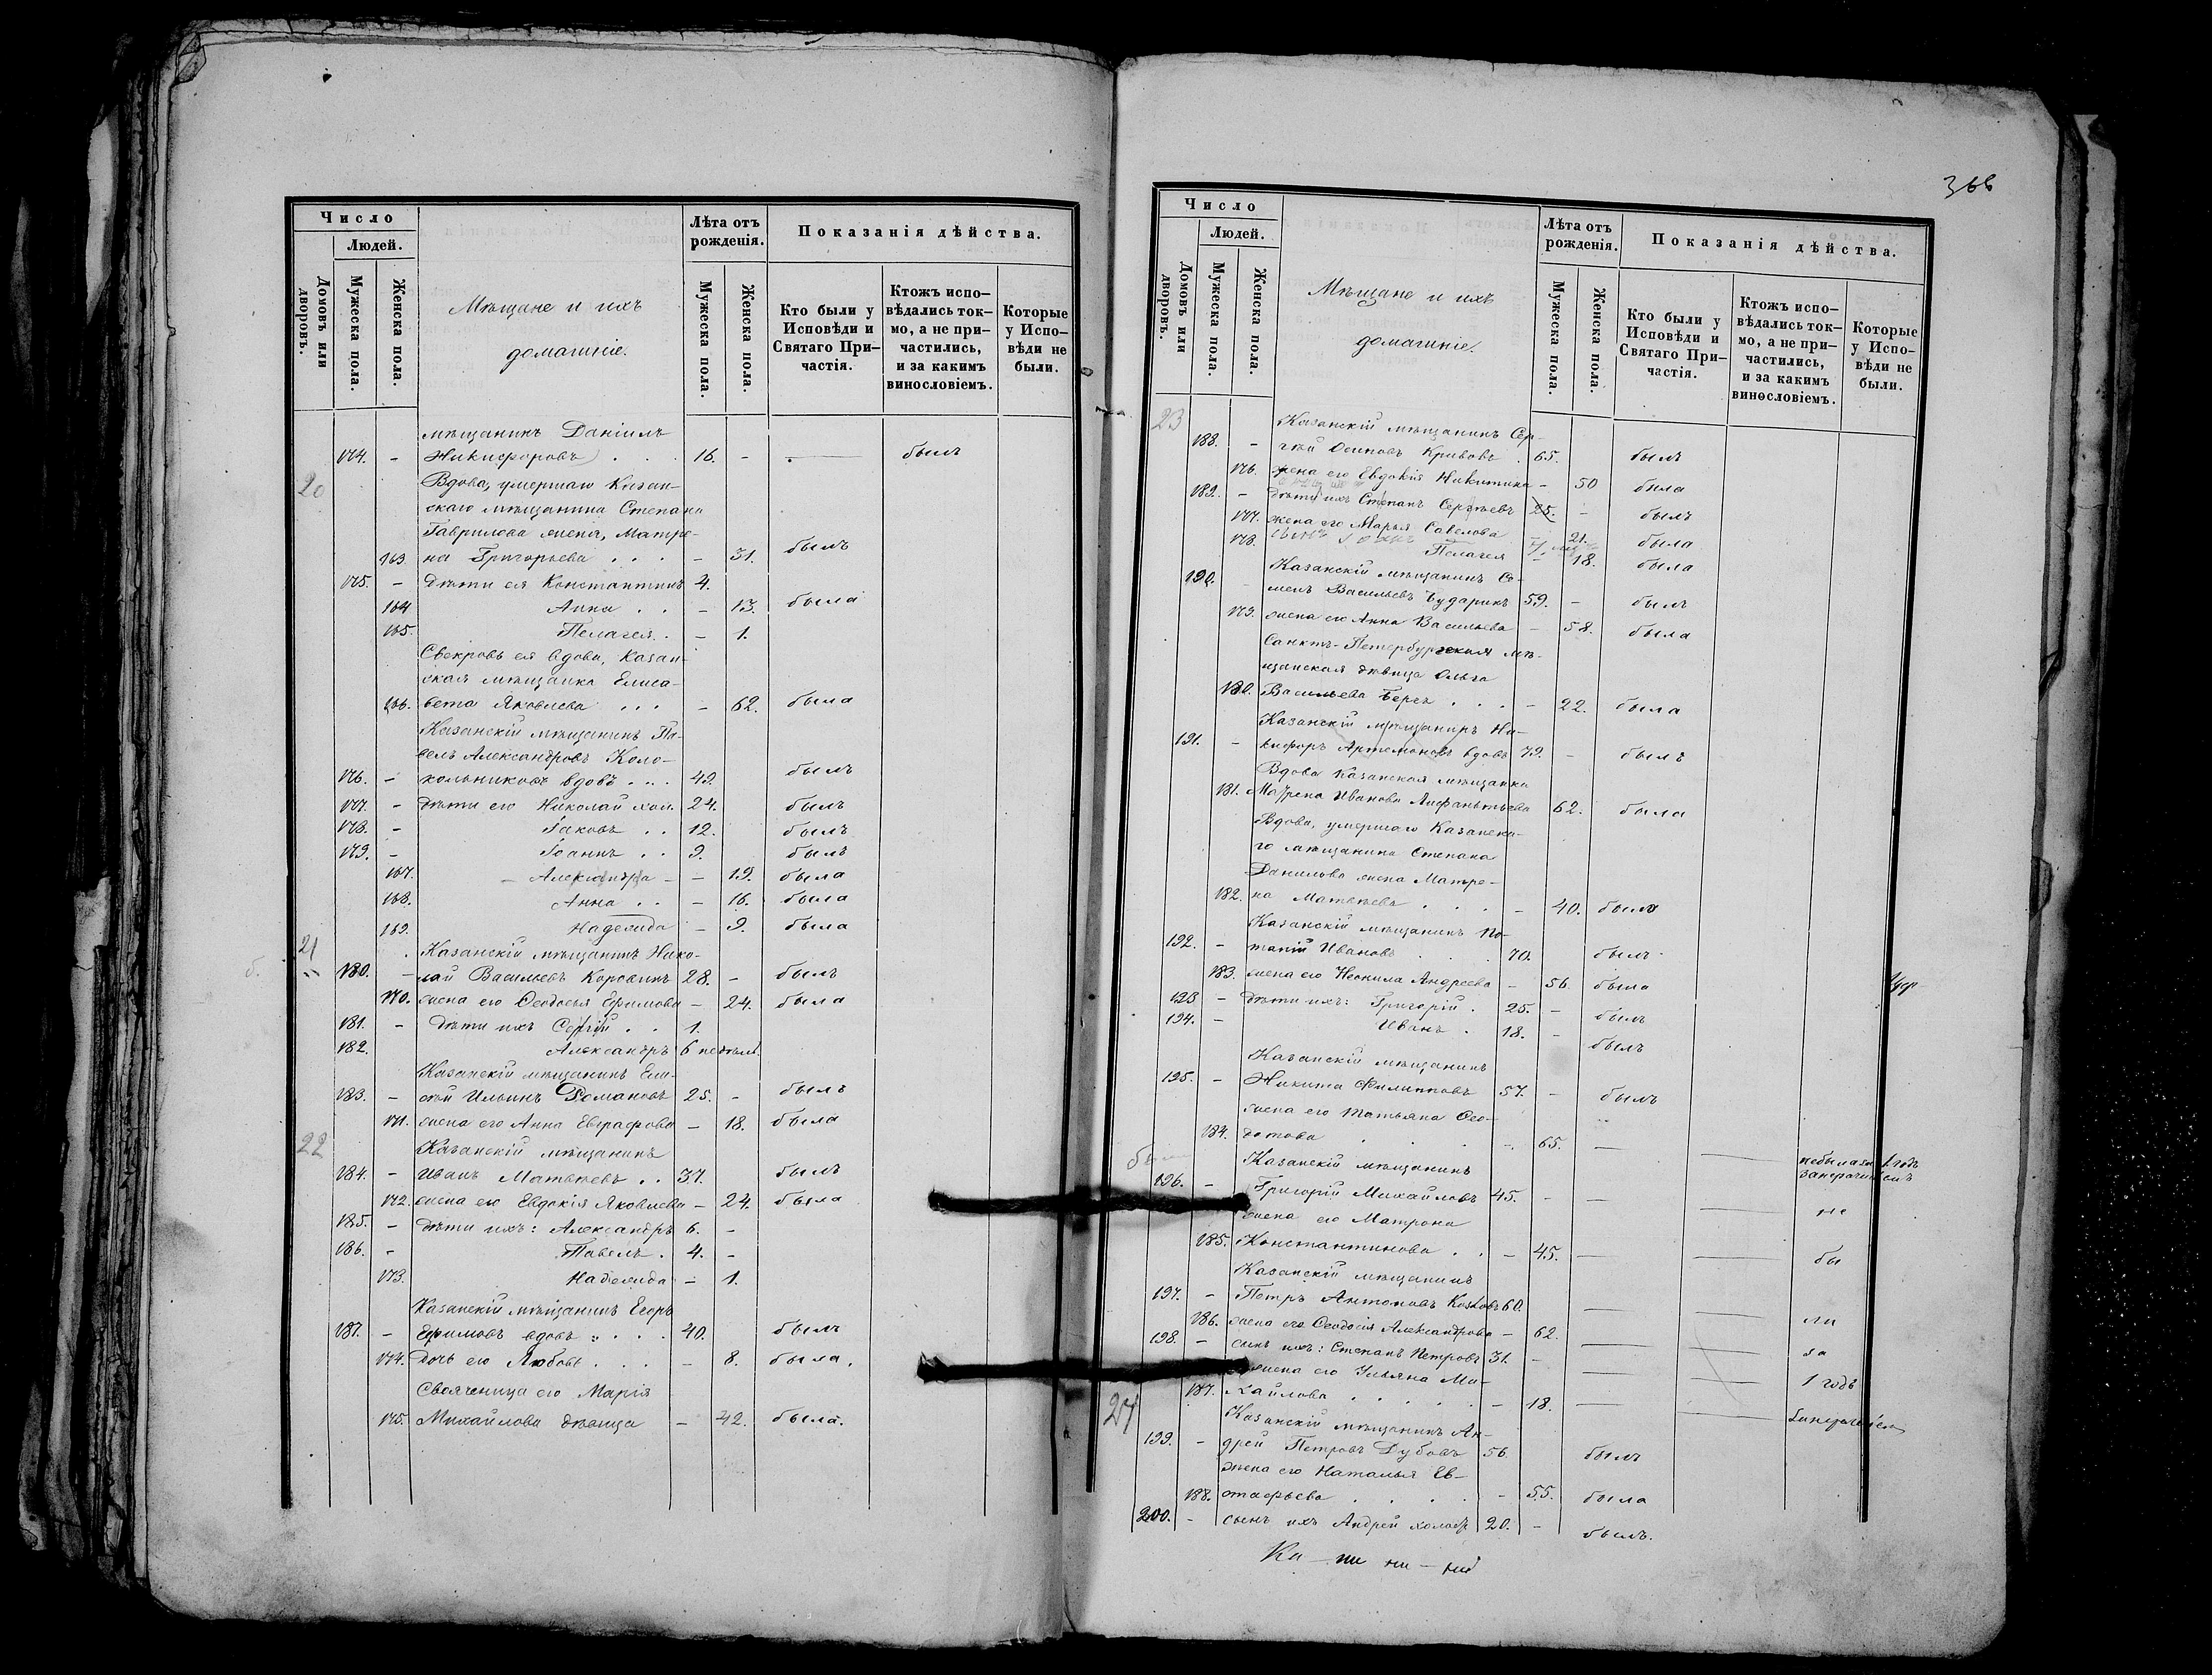 Число
Людей.
Домовъ или дворовъ.
Мужеска пола.
Женска пола.
Мѣщане и ихъ
домашніе.
Лѣта отъ рожденія.
Мужеска пола.
Женска пола.
Показанія дѣйства.
Кто были у Исповѣди и Святаго При-частія.
Ктожъ испо-вѣдались ток-мо, а не при-частились, и за какимъ винословіемъ.
Которые у Испо-вѣди не были.
мѣщанинъ Даніилъ
174. - Никифоровъ . . . 16. - былъ
20 Вдова, умершаго Казан-
скаго мѣщанина Степана
Гаврилова жена, Матре-
163 на Григорьева . . . - 31. былъ
175. - дѣти ея Константинъ 4.
164 Анна . . - 13. была
165. Пелагея . - 1.
Свекровь ея вдова, Казан-
ская мѣщанка Елиса-
166. вета Яковлева . . . - 62. была
Казанскій мѣщанинъ Па-
велъ Александровъ Коло-
176. - кольниковъ вдовъ . . . 49. былъ
177. - дѣти его Николай хол. 24. былъ
178. - Іаковъ . . 12. былъ
179. - Іоаннъ . . 9. былъ
167. - Александра - - 19. была
168. Анна . . - 16. была
169. Надежда - 9. была
21 Казанскій мѣщанинъ Нико-
б. 180. - лай Васильевъ Коровинъ 28. - былъ
170. жена его Ѳеодосья Ефимова - 24. была
181. - дѣти ихъ Сергій . . 1.
182. Александръ 6 недѣль.
Казанскій мѣщанинъ Ели-
183. - сѣй Ильинъ Романовъ 25. - былъ
171. жена его Анна Евграфова - 18. была
22 Казанскій мѣщанинъ
184. - Иванъ Матвѣевъ . . 37. былъ
172. жена его Евдокія Яковлева - 24. была
185. - дѣти ихъ: Александръ 6. -
186. - Павелъ . 4. -
173. Надежда - 1.
Казанскій мѣщанинъ Егоръ
187. - Ефимовъ вдовъ . . . 40. былъ
174. дочь его Любовь . . . - 8. была.
Свояченица его Марія
175. Михайлова дѣвица - 42. была.
366
Число
Людей.
Домовъ или дворовъ.
Мужеска пола.
Женска пола.
Мѣщане и ихъ
домашніе.
Лѣта отъ рожденія.
Мужеска пола.
Женска пола.
Показанія дѣйства.
Кто были у Исповѣди и Святаго При-частія.
Ктожъ испо-вѣдались ток-мо, а не при-частились, и за какимъ винословіемъ.
Которые у Испо-вѣди не были.
23 Казанскій мѣщанинъ Сер-
188. - гѣй Осиповъ Кривовъ . 65. былъ
176. жена его Евдокія Никитина - 50 была
189. - дѣти ихъ Степанъ Сергѣевъ 25. - былъ
177. жена его Марья Савелова - 21. была
178. Пелагея - 18. была
Казанскій мѣщанинъ Се-
190. менъ Васильевъ Бударинъ 59. - былъ
179. жена его Анна Васильева - 58. была
Санктъ-Петербургская мѣ-
щанская дѣвица Ольга
180. Васильева Берсъ . . . - 22. была
Казанскій мѣщанинъ Ни-
191. - кифоръ Артемоновъ вдовъ 79. - былъ
Вдова Казанская мѣщанка
181. Матрена Иванова 62. была
Вдова, умершаго Казанска-
го мѣщанина Степана
Данилова жена Матре-
182. на Матвѣева . . . - 40. была
Казанскій мѣщанинъ По-
192. - тапій Ивановъ . . . 70. былъ
183. жена его Неонила Андреева - 56. была
193 - дѣти ихъ: Григорій . 25. - былъ
194. - Иванъ . 18. - былъ
Казанскій мѣщанинъ
195. - Никита Филипповъ 57. - былъ
жена его Татьяна Ѳео-
184. дотова . . . - 65. - небыла за 1 годъ
Казанскій мѣщанинъ
196. - Григорій Михайловъ 45. - - не
жена его Матрона
185. Константинова . . - 45. бы
Казанскій мѣщанинъ
197. - Петръ Антоновъ Козловъ 60. ли
186. жена его Ѳеодосія Александрова - 62. за
198. - сынъ ихъ: Степанъ Петровъ 31. - 1 годъ
жена его Ульяна Ми-
187. хайлова . . . . - 18.
24 Казанскій мѣщанинъ Ан-
199. - дрей Петровъ Дубовъ 56. былъ
жена его Наталья Ев-
188. стафьева . . . . - 55. была
200. - сынъ ихъ Андрей холост 20. - былъ.